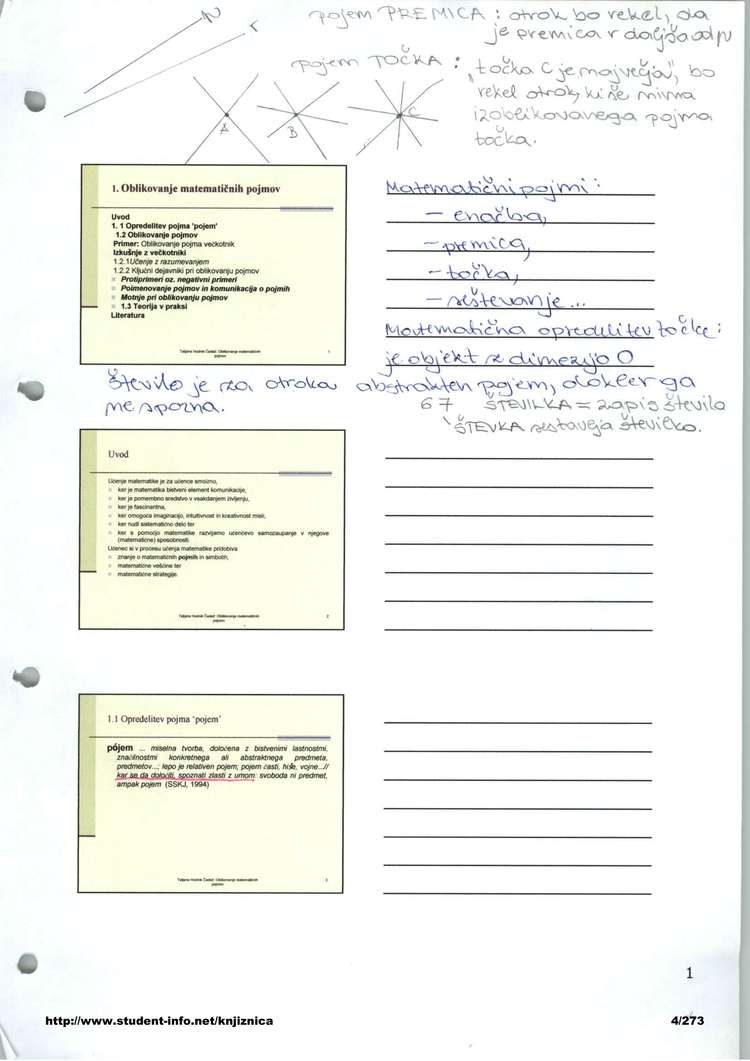 N
r
pojem PREMICA : otrok bo rekel, da
je premica r daljša od p
pojem TOČKA : "točka C je največja", bo
rekel otrok, ki še nima
izoblikovanega pojma
točka.
A
B
C
1. Oblikovanje matematičnih pojmov
Uvod
1. 1 Opredelitev pojma 'pojem'
1.2 Oblikovanje pojmov
Primer: Oblikovanje pojma večkotnik
Izkušnje z večkotniki
1.2.1Učenje z razumevanjem
1.2.2 Ključni dejavniki pri oblikovanju pojmov
Protiprimeri oz. negativni primeri
Poimenovanje pojmov in komunikacija o pojmih
Motnje pri oblikovanju pojmov
1.3 Teorija v praksi
Literatura
Tatjana Hodnik Čadež: Oblikovanje matematičnih
pojmov
1
Matematični pojmi :
- enačba,
- premica,
- točka,
- seštevanje ...
Matematična opredelitev točke :
je objekt z dimezijo 0
število je za otroka abstrakten pojem, dokler ga
ne spozna.
67 ŠTEVILKA = zapis število
ŠTEVKA sestavlja številko.
Uvod
Učenje matematike je za učence smotrno,
ker je matematika bistveni element komunikacije,
ker je pomembno sredstvo v vsakdanjem življenju,
ker je fascinantna,
ker omogoča imaginacijo, intuitivnost in kreativnost misli,
ker nudi sistematično delo ter
ker s pomočjo matematike razvijemo učenčevo samozaupanje v njegove
(matematične) sposobnosti.
Učenec si v procesu učenja matematike pridobiva
znanje o matematičnih pojmih in simbolih,
matematične veščine ter
matematične strategije.
Tatjana Hodnik Čadež: Oblikovanje matematičnih
pojmov
2
1.1 Opredelitev pojma 'pojem'
pójem ... miselna tvorba, določena z bistvenimi lastnostmi,
značilnostmi konkretnega ali abstraktnega predmeta,
predmetov...; lepo je relativen pojem; pojem časti, hiše, vojne...//
kar se da določiti, spoznati zlasti z umom: svoboda ni predmet,
ampak pojem (SSKJ, 1994)
Tatjana Hodnik Čadež: Oblikovanje matematičnih
pojmov
3
1
http://www.student-info.net/knjiznica
4/273